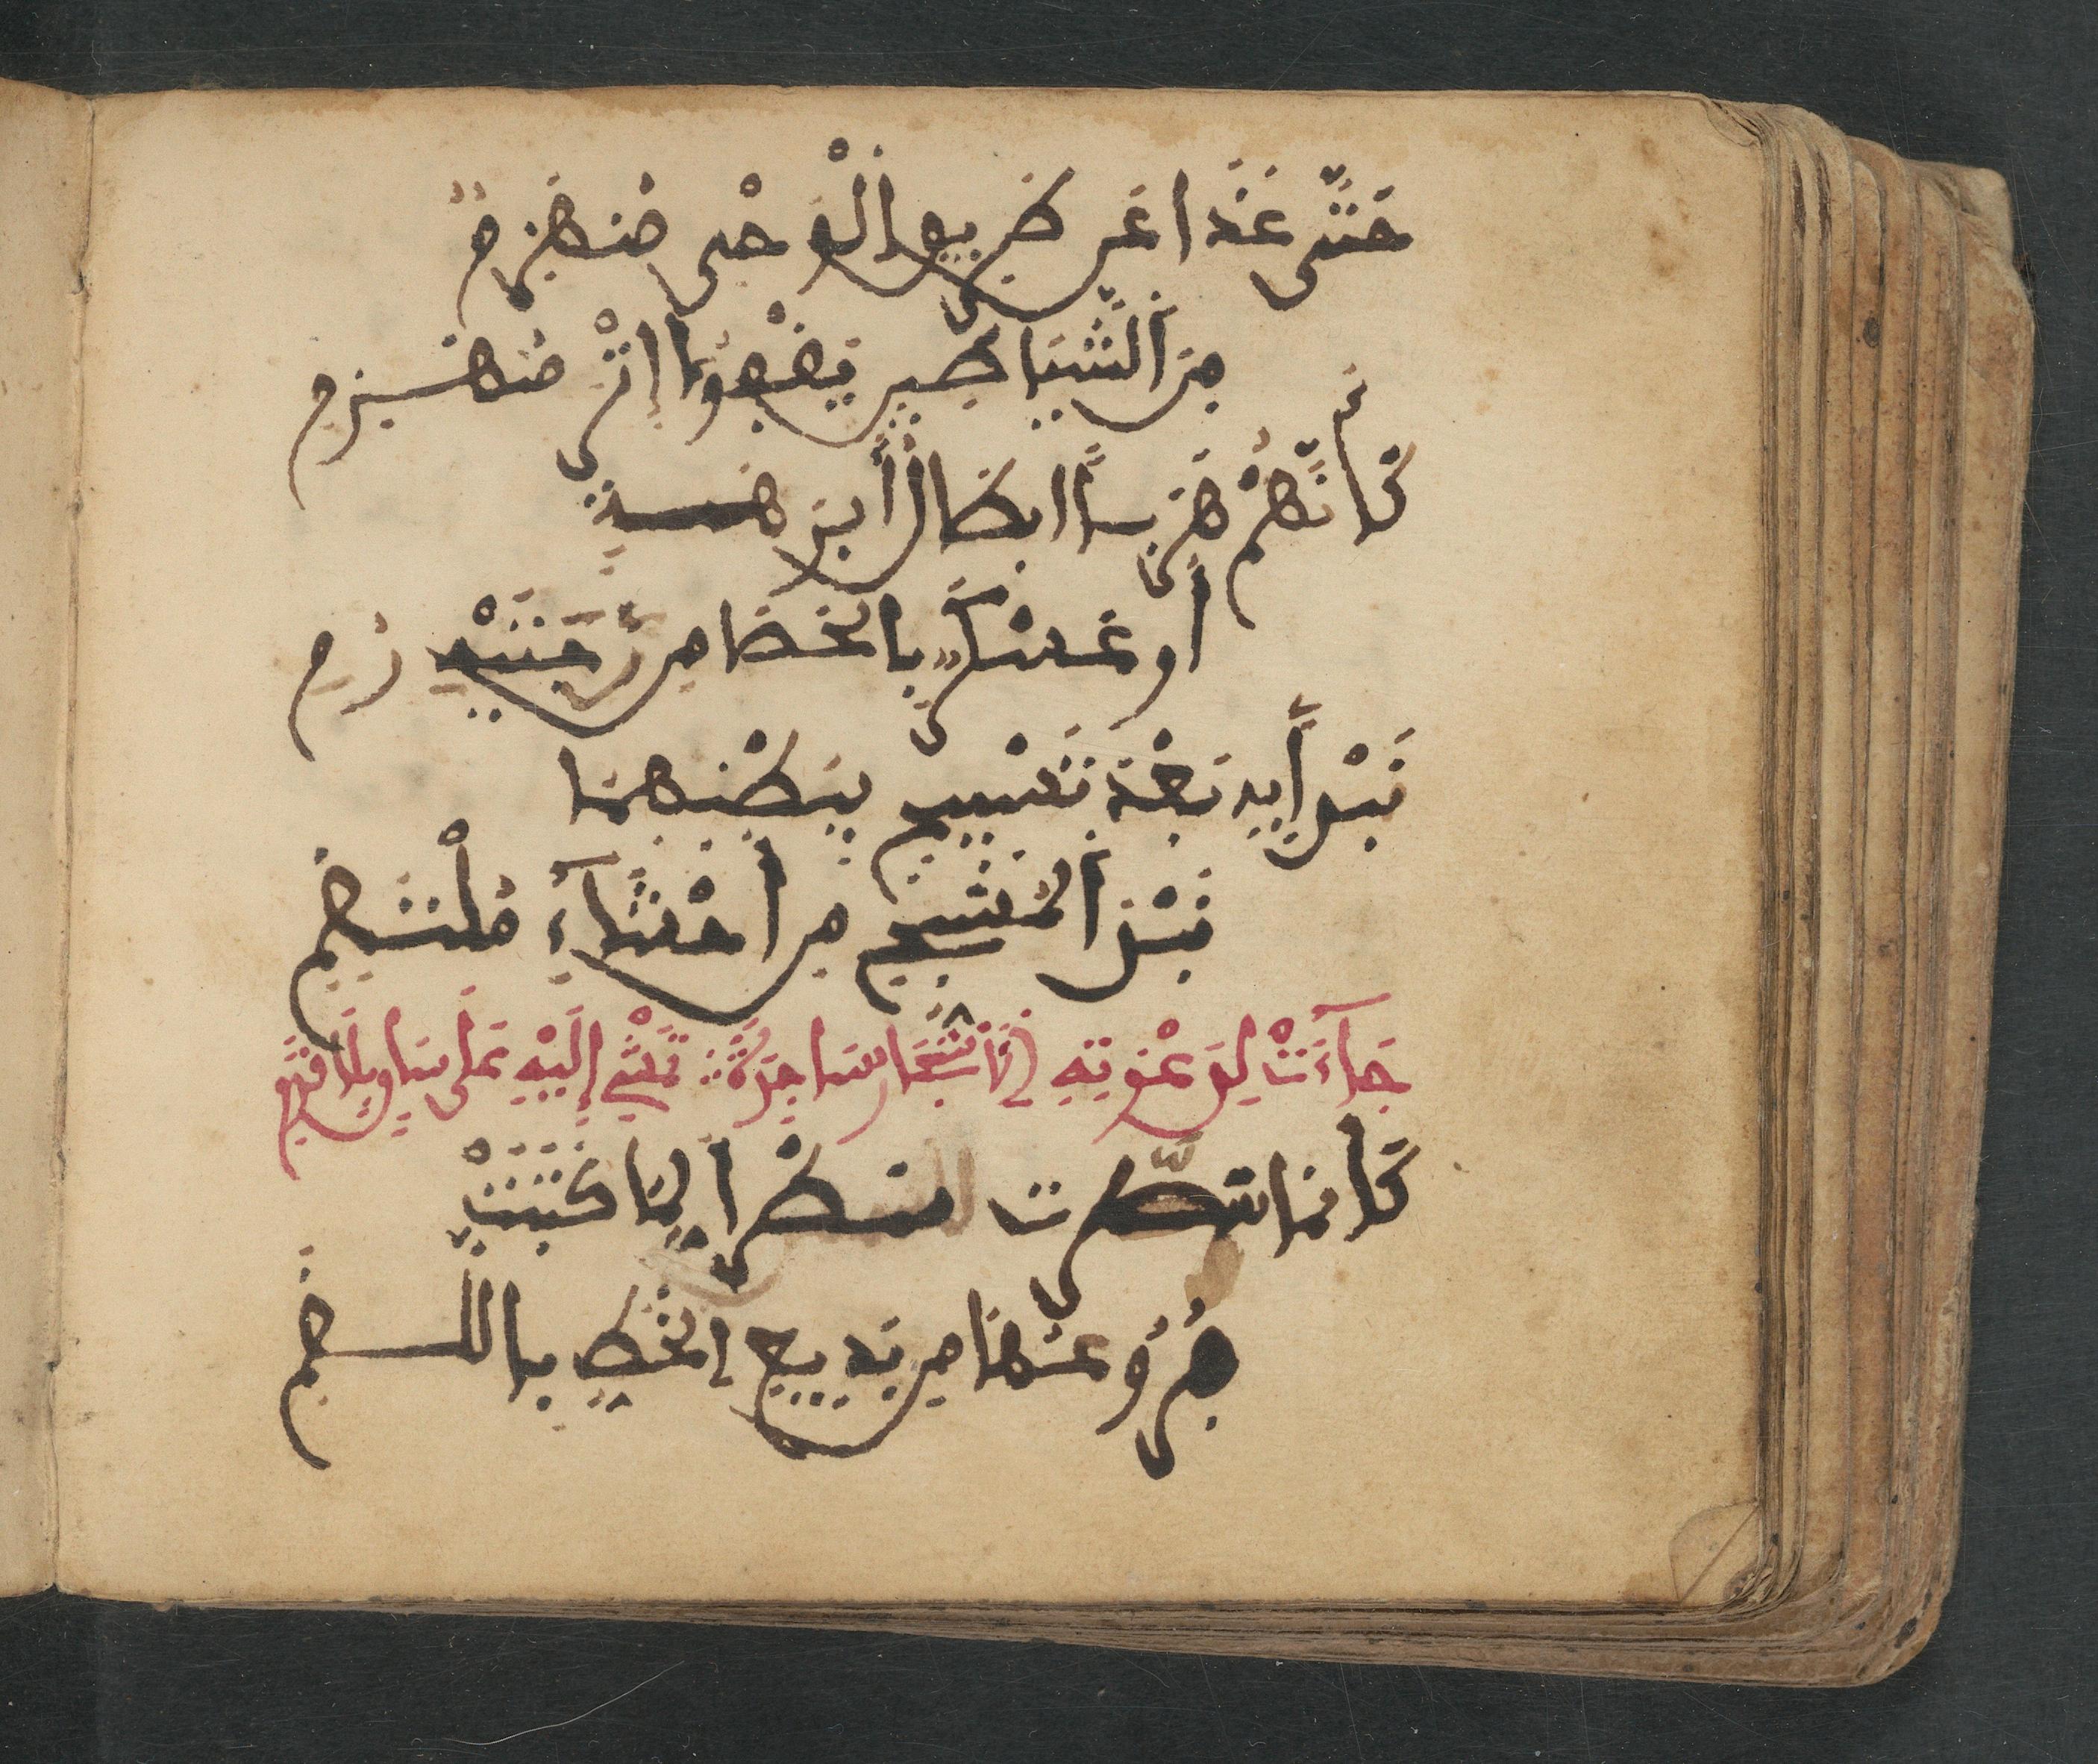 حَتَّى غَدَا عَن طَرِيقِ اِلْوَحْيِ مُنْهَزِمٌ
مِنَ اَلشَّيَاطِينِ يَقْفُوا إِثْرَ مُنْهَزِمِ
كَأَنَّهُمْ هَرَباً اَبْطَالُ أَبْرَهَةٍ
أَو عَسْكَرٍ بِالْحَصَا مِن رَّحَتَيْهِ رُمِ
نَبْذاً بِهِ بَعْدَ تَسْبِيحٍ بِبَطْنِهِمَا
نَبْذَ اَلْمُسَبِّحِ مِن أَحْشَآءِ مُلْتَقِمِ
جَآءَتْ لِدَعْوَتِهِ اِلَاشْجَارُ سَاجِدَةً تَمْشِي إِلَيْهِ عَلَى سَاقٍ بِلَا قَدَمِ
كَأَنَّمَا سَطَّرَت سَطْراً لِمَا كَتَبَتْ
فُرُوعُهَا مِن بَدِيعِ اِلْخَطِّ بِاللَّقَمِ